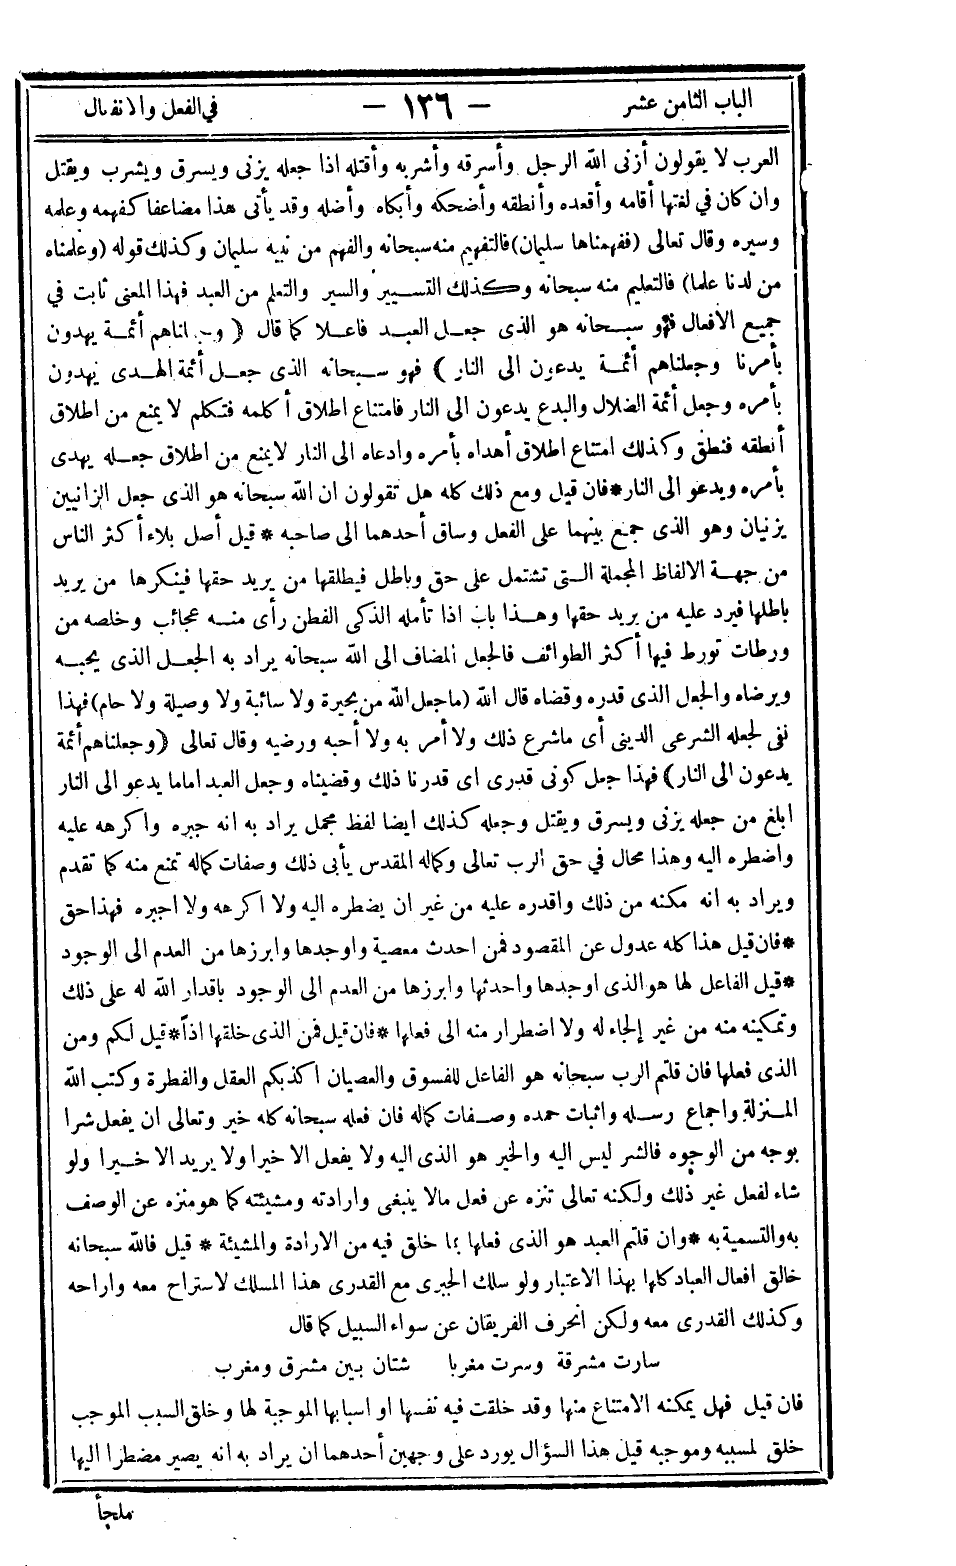 الباب الثامن عشر
— ١٣٦ —
في الفعل والانفعال
العرب لا يقولون أزنى الله الرجل وأسرقه وأشربه وأقتله اذا جعله يزنى ويسرق ويشرب ويقتل
وان كان في لغتها أقامه وأقعده وأنطقه وأضحكه وأبكاه وأضله وقد يأتى هذا مضاعفا كفهمه وعلمه
وسيره وقال تعالى (ففهمناها سليمان) فالتفهيم منه سبحانه والفهم من نبيه سليمان وكذلك قوله (وعلمناه
من لدنا علما) فالتعليم منه سبحانه وكذلك التسيير والسير والتعلم من العبد فهذا المعنى ثابت في
جميع الافعال فهو سبحانه هو الذى جعل العبد فاعلا كما قال ( وجعلناهم أئمة يهدون
بأمرنا وجعلناهم أئمة يدعون الى النار ) فهو سبحانه الذى جعل أئمة الهدى يهدون
بأمره وجعل أئمة الضلال والبدع يدعون الى النار فامتناع اطلاق أكلمه فتكلم لا يمنع من اطلاق
أنطقه فنطق وكذلك امتناع اطلاق أهداه بأمره وادعاه الى النار لايمنع من اطلاق جعله يهدى
بأمره ويدعو الى النار*فان قيل ومع ذلك كله هل تقولون ان الله سبحانه هو الذى جعل الزانيين
يزنيان وهو الذى جمع بينهما على الفعل وساق أحدهما الى صاحبه * قيل أصل بلاء أكثر الناس
من جهة الالفاظ المجملة التى تشتمل على حق وباطل فيطلقها من يريد حقها فينكرها من يريد
باطلها فيرد عليه من يريد حقها وهذا باب اذا تأمله الذكى الفطن رأى منه عجائب وخلصه من
ورطات تورط فيها أكثر الطوائف فالجعل المضاف الى الله سبحانه يراد به الجعل الذى يحبه
ويرضاه والجعل الذى قدره وقضاه قال الله (ماجعل الله من بحيرة ولا سائبة ولا وصيلة ولا حام) فهذا
نفى لجعله الشرعى الدينى أى ماشرع ذلك ولا أمر به ولا أحبه ورضيه وقال تعالى (وجعلناهم أئمة
يدعون الى النار) فهذا جعل كونى قدرى اى قدرنا ذلك وقضيناه وجعل العبد اماما يدعو الى النار
ابلغ من جعله يزنى ويسرق ويقتل وجعله كذلك ايضا لفظ مجمل يراد به انه جبره واكرهه عليه
واضطره اليه وهذا محال في حق الرب تعالى وكماله المقدس يأبى ذلك وصفات كماله تمنع منه كما تقدم
ويراد به انه مكنه من ذلك واقدره عليه من غير ان يضطره اليه ولا اكرهه ولا اجبره فهذا حق
*فان قيل هذا كله عدول عن المقصود فمن احدث معصية واوجدها وابرزها من العدم الى الوجود
*قيل الفاعل لها هو الذى اوجدها واحدثها وابرزها من العدم الى الوجود باقدار الله له على ذلك
وتمكينه منه من غير إلجاء له ولا اضطرار منه الى فعلها*فان قيل فمن الذى خلقها اذاً*قيل لكم ومن
الذى فعلها فان قلتم الرب سبحانه هو الفاعل للفسوق والعصيان اكذبكم العقل والفطرة وكتب الله
المنزلة واجماع رسله واثبات حمده وصفات كماله فان فعله سبحانه كله خير وتعالى ان يفعل شرا
بوجه من الوجوه فالشر ليس اليه والخير هو الذى اليه ولا يفعل الا خيرا ولا يريد الا خيرا ولو
شاء لفعل غير ذلك ولكنه تعالى تنزه عن فعل مالا ينبغى وارادته ومشيئته كما هو منزه عن الوصف
به والتسمية به *وان قلتم العبد هو الذى فعلها بما خلق فيه من الارادة والمشيئة * قيل فالله سبحانه
خالق افعال العباد كلها بهذا الاعتبار ولو سلك الجبرى مع القدرى هذا المسلك لاستراح معه واراحه
وكذلك القدرى معه ولكن انحرف الفريقان عن سواء السبيل كما قال
سارت مشرقة وسرت مغربا    شتان بين مشرق ومغرب
فان قيل فهل يمكنه الامتناع منها وقد خلقت فيه نفسها او اسبابها الموجبة لها وخلق السبب الموجب
خلق لمسببه وموجبه قيل هذا السؤال يورد على وجهين أحدهما ان يراد به انه يصير مضطرا اليها
ملجأ